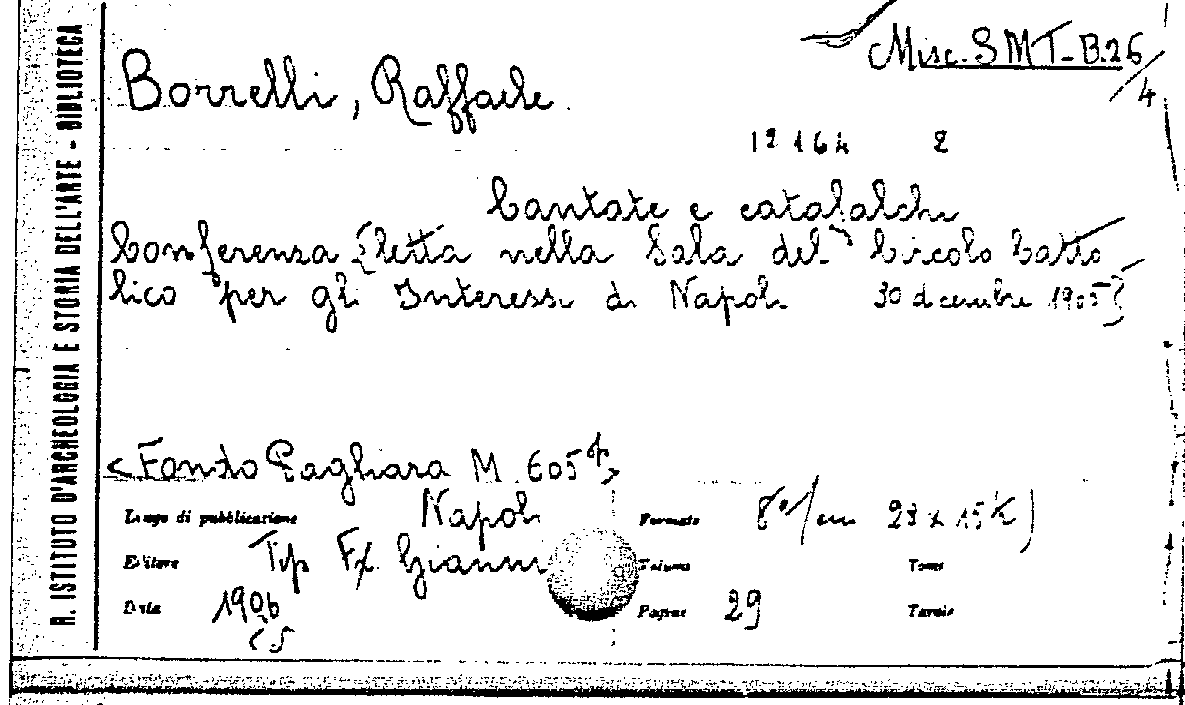 R. ISTITUTO D'ARCHEOLOGIA E STORIA DELL'ARTE - BIBLIOTECA
Misc. SMT-B.26/4
Borrelli, Raffaele.
12164 2
Cantate e catafalchi
Conferenza letta nella Sala del Circolo Catto
lico per gli Interessi di Napoli 30 dicembre 1905
<Fondo Pagliara M 605
Luogo di pubblicazione Napoli Formato 8° cm 23 x 15 ½)
Editore Tip Fr. Giannini Volume Tomi
Data 1906 Pagine 29 Tavole